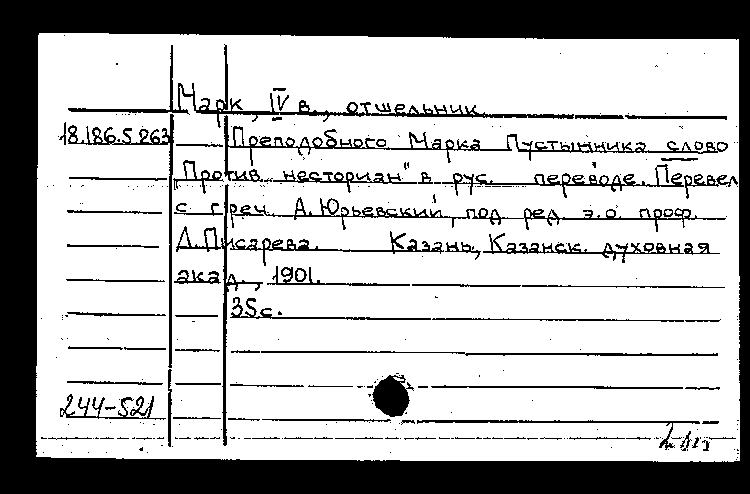 Марк, IV в., отшельник
18.186.5.263 Преподобного Марка Пустынника слово
„Против несториан" в рус. переводе. Перевел
с греч. А. Юрьевский, под ред. э.о. проф.
Л. Писарева. Казань, Казанск. духовная
акад., 1901.
35 с.
244-521